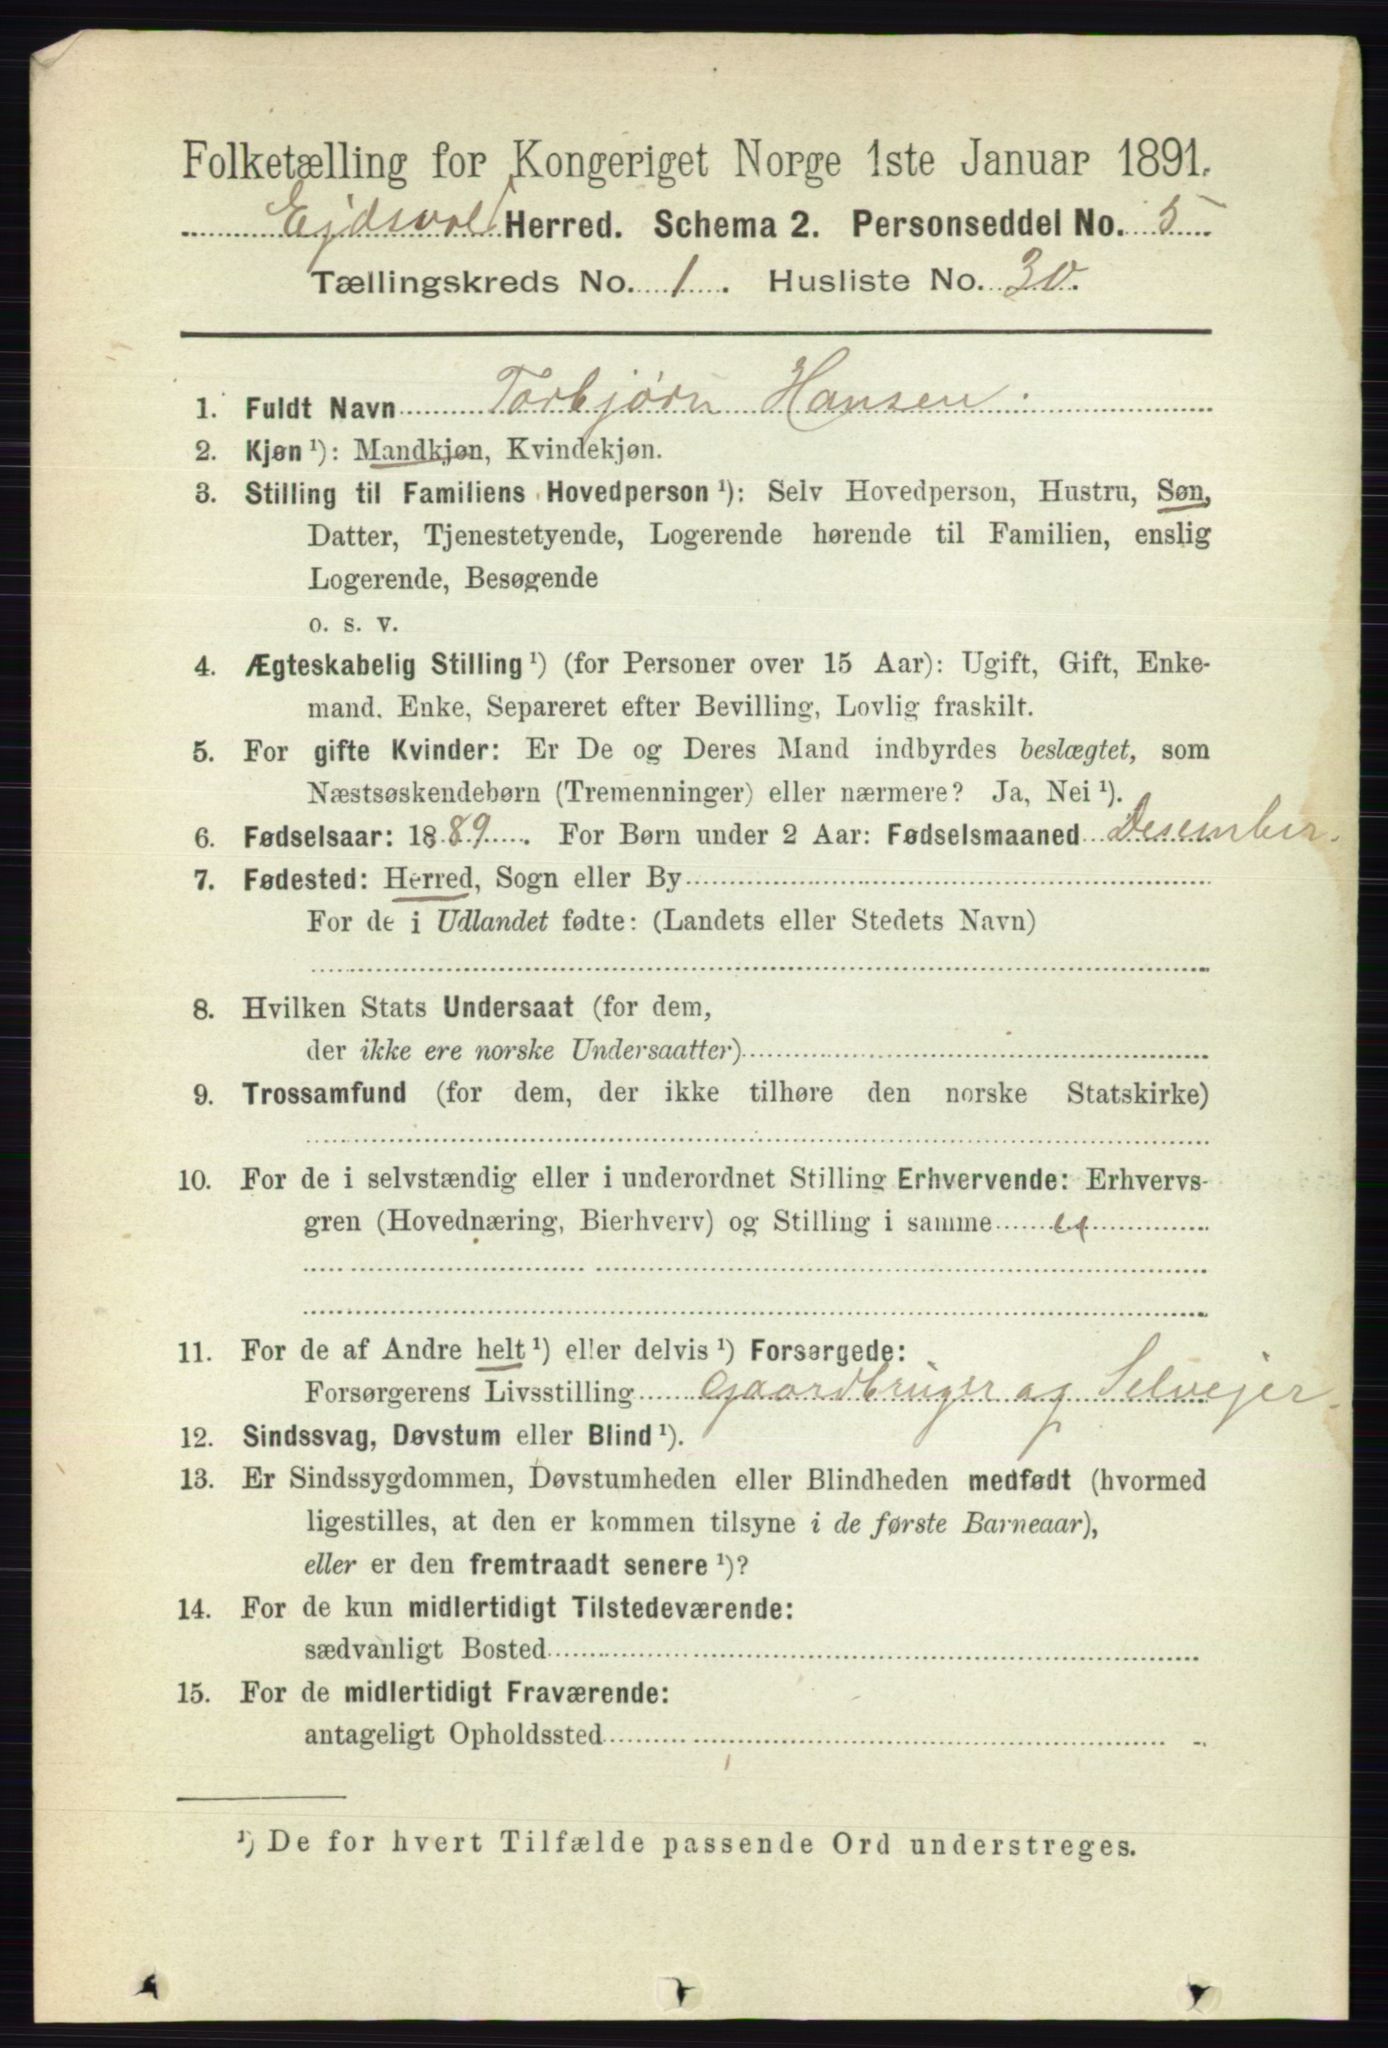 Folketælling for Kongeriget Norge 1ste Januar 1891.
Ejdsvold Herred. Schema 2. Personseddel No. 5
Tællingskreds No. 1. Husliste No. 30.
1. Fuldt Navn Torbjørn Hansen
2. Kjøn ¹): Mandkjøn, Kvindekjøn.
3. Stilling til Familiens Hovedperson ¹): Selv Hovedperson, Hustru, Søn,
Datter, Tjenestetyende, Logerende hørende til Familien, enslig
Logerende, Besøgende
o. s. v.
4. Ægteskabelig Stilling ¹) (for Personer over 15 Aar): Ugift, Gift, Enke-
mand, Enke, Separeret efter Bevilling, Lovlig fraskilt.
5. For gifte Kvinder: Er De og Deres Mand indbyrdes beslægtet, som
Næstsøskendebørn (Tremenninger) eller nærmere? Ja, Nei ¹).
6. Fødselsaar: 1889. For Børn under 2 Aar: Fødselsmaaned Desember.
7. Fødested: Herred, Sogn eller By
For de i Udlandet fødte: (Landets eller Stedets Navn)
8. Hvilken Stats Undersaat (for dem,
der ikke ere norske Undersaatter)
9. Trossamfund (for dem, der ikke tilhøre den norske Statskirke)
10. For de i selvstændig eller i underordnet Stilling Erhvervende: Erhvervs-
gren (Hovednæring, Bierhverv) og Stilling i samme
11. For de af Andre helt ¹) eller delvis ¹) Forsørgede:
Forsørgerens Livsstilling Gaardbruger og Selvejer.
12. Sindssvag, Døvstum eller Blind ¹).
13. Er Sindssygdommen, Døvstumheden eller Blindheden medfødt (hvormed
ligestilles, at den er kommen tilsyne i de første Barneaar),
eller er den fremtraadt senere ¹)?
14. For de kun midlertidigt Tilstedeværende:
sædvanligt Bosted
15. For de midlertidigt Fraværende:
antageligt Opholdssted
¹) De for hvert Tilfælde passende Ord understreges.